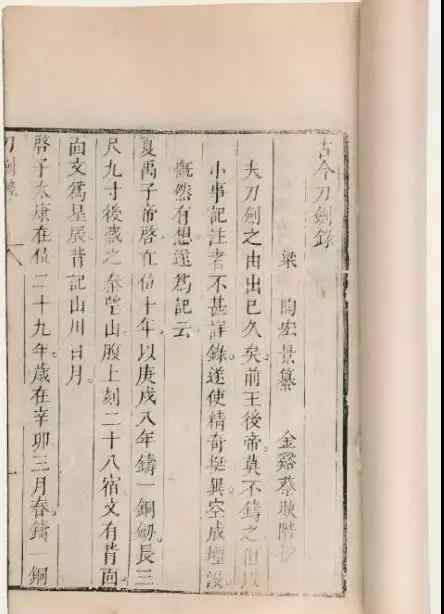 古今刀劍錄
梁 陶宏景纂 金谿蔡階
夫刀劍之由出已久矣。前王後帝莫不鑄之但以
小事記注者不甚詳錄。遂使精奇挺異。空成堙沒
慨然有想遂爲記云
夏禹子帝啓在位十年。以庚戌八年鑄一銅劍。長三
尺九寸後藏之秦望山腹上刻二十八宿文有背面
面文爲星辰背記山川日月。
啓子太康在位二十九年。歲在辛卯三月春。鑄一銅
刀劍錄
一